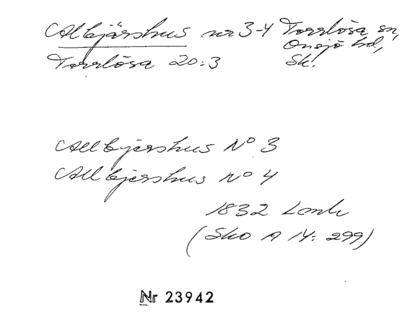 Allbjärshus nr 3-4 Torrlösa sn,
Onsjö hd,
Torrlösa 20:3 Sk.
Allbjershus No 3
Allbjershus No 4
1832 Lantm
(Sko A 14: 299)
Nr 23942